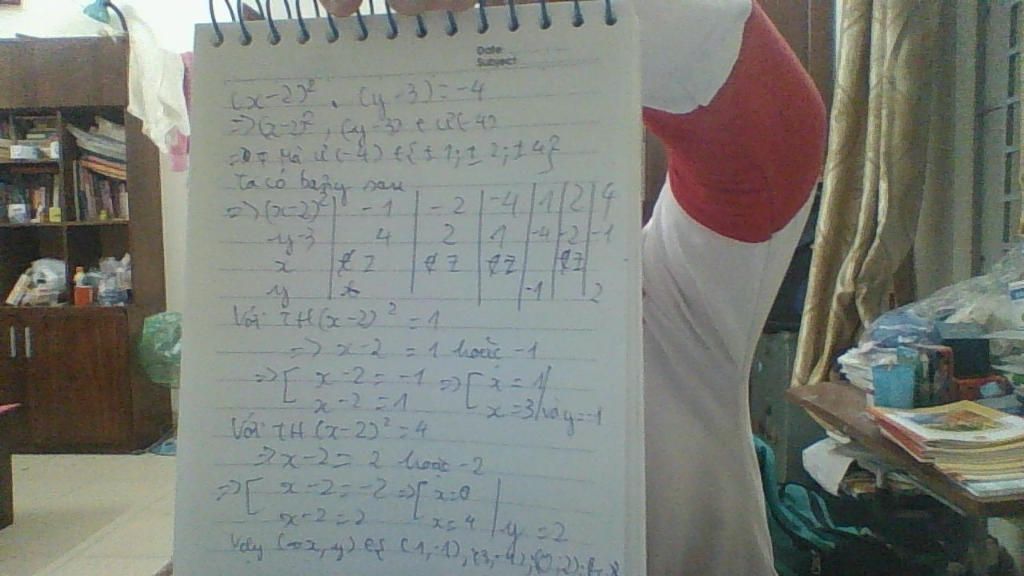 Date
Subject
(x-2)² . (y-3) = -4
=> (x-2)², (y-3) ∈ Ư(-4)
Mà Ư(-4) ∈ {±1; ±2; ±4}
Ta có bảng sau
=> (x-2)² | -1 | -2 | -4 | 1 | 2 | 4
y-3 | 4 | 2 | 1 | -4 | -2 | -1
x | ∉ Z | ∉ Z | ∉ Z | | ∉ Z |
y | | | | -1 | | 2
Với TH (x-2)² = 1
=> x-2 = 1 hoặc -1
=> [ x-2 = -1 => [ x = 1
x-2 = 1 x = 3 và y = -1
Với TH (x-2)² = 4
=> x-2 = 2 hoặc -2
=> [ x-2 = -2 => [ x = 0
x-2 = 2 x = 4 | y = 2
Vậy (x, y) ∈ { (1,-1), (0,2);